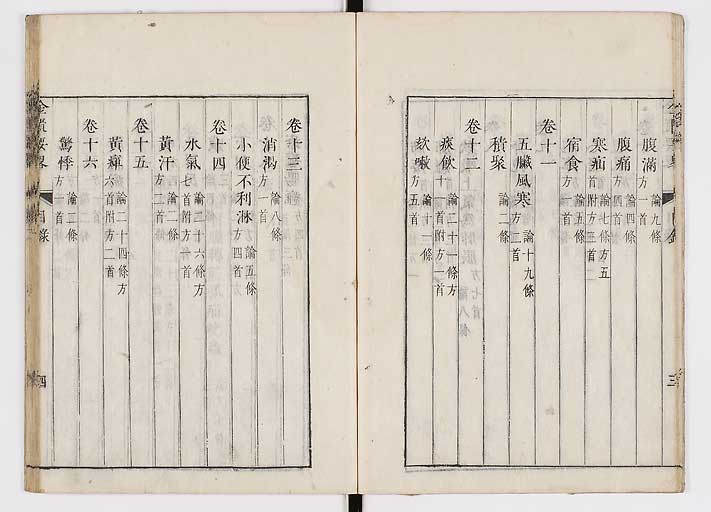 腹滿 論九條 方一首
腹痛 論四條 方四首
寒疝 論七條方五首附方三首
宿食 論五條 方一首
卷十一
五臟風寒 論十九條 方二首
積聚 論二條
卷十二
痰飲 論三十一條方十一首附方一首
欬嗽 論十一條 方五首
三
卷十三
消渴 論八條 方一首
小便不利淋 論五條 方四首
卷十四
水氣 論三十六條方七首附方首
黃汗 論二條 方二首
卷十五
黃癉 論二十四條方六首附方二首
卷十六
驚悸 論三條 方一首
金匱要畧 目錄 四